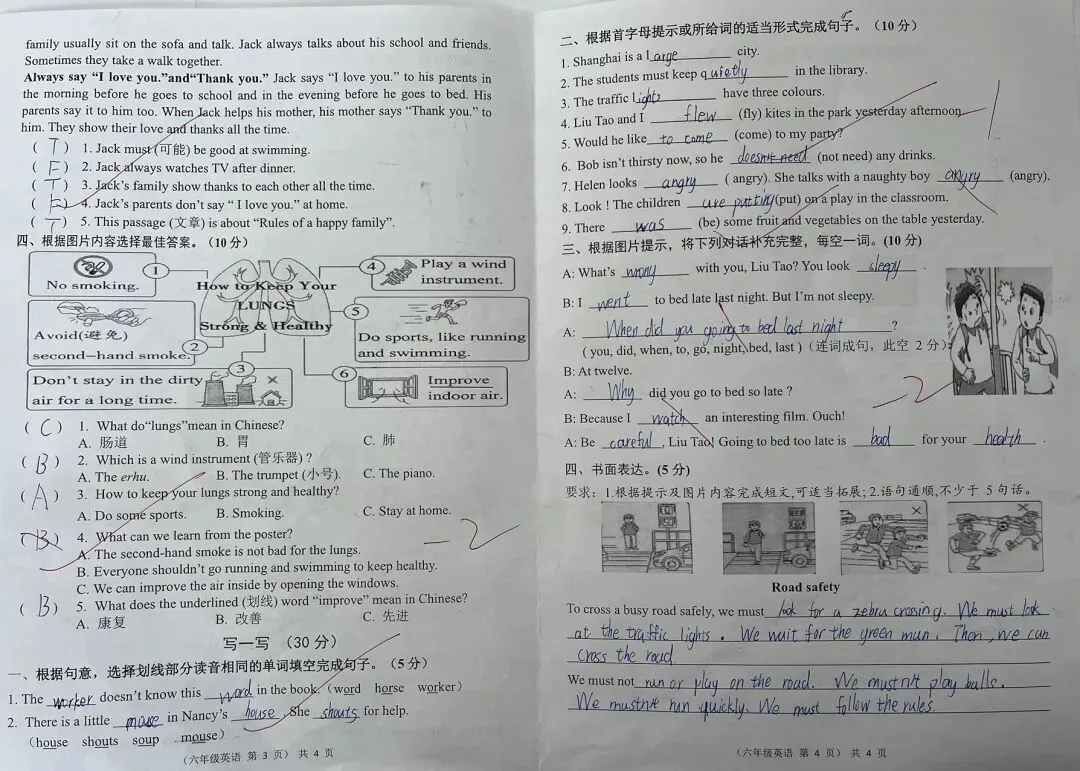 family usually sit on the sofa and talk. Jack always talks about his school and friends.
Sometimes they take a walk together.
Always say “I love you.”and“Thank you.” Jack says “I love you.” to his parents in
the morning before he goes to school and in the evening before he goes to bed. His
parents say it to him too. When Jack helps his mother, his mother says “Thank you.” to
him. They show their love and thanks all the time.
( T ) 1. Jack must (可能) be good at swimming.
( F ) 2. Jack always watches TV after dinner.
( T ) 3. Jack’s family show thanks to each other all the time.
( F ) 4. Jack’s parents don’t say “ I love you.” at home.
( T ) 5. This passage (文章) is about “Rules of a happy family”.
四、根据图片内容选择最佳答案。(10 分)
No smoking.
1
How to Keep Your
LUNGS
Strong & Healthy
4
Play a wind
instrument.
Avoid(避 免)
second-hand smoke.
2
5
Do sports, like running
and swimming.
Don’t stay in the dirty
air for a long time.
3
6
Improve
indoor air.
( C ) 1. What do“lungs”mean in Chinese?
A. 肠道 B. 胃 C. 肺
( B ) 2. Which is a wind instrument (管乐器) ?
A. The erhu. B. The trumpet (小号). C. The piano.
( A ) 3. How to keep your lungs strong and healthy?
A. Do some sports. B. Smoking. C. Stay at home.
( B ) 4. What can we learn from the poster?
A. The second-hand smoke is not bad for the lungs.
B. Everyone shouldn’t go running and swimming to keep healthy.
C. We can improve the air inside by opening the windows.
-2
( B ) 5. What does the underlined (划线) word “improve” mean in Chinese?
A. 康复 B. 改善 C. 先进
写一写 (30 分)
一、根据句意，选择划线部分读音相同的单词填空完成句子。(5 分)
1. The worker doesn’t know this word in the book.(word horse worker)
2. There is a little mouse in Nancy’s house , She shouts for help.
(house shouts soup mouse)
(六年级英语 第 3 页) 共 4 页
二、根据首字母提示或所给词的适当形式完成句子。(10 分)
1. Shanghai is a large city.
2. The students must keep quietly in the library.
3. The traffic lights have three colours.
4. Liu Tao and I flew (fly) kites in the park yesterday afternoon.
-1
5. Would he like to come (come) to my party?
6. Bob isn’t thirsty now, so he doesn't need (not need) any drinks.
7. Helen looks angry ( angry). She talks with a naughty boy angry (angry).
8. Look ! The children are putting (put) on a play in the classroom.
9. There was (be) some fruit and vegetables on the table yesterday.
三、根据图片提示，将下列对话补充完整，每空一词。(10 分)
A: What’s wrong with you, Liu Tao? You look sleepy .
B: I went to bed late last night. But I’m not sleepy.
A: When did you going to bed last night ?
( you, did, when, to, go, night, bed, last ) (连词成句，此空 2 分)
B: At twelve.
A: Why did you go to bed so late ?
-2
B: Because I watch an interesting film. Ouch!
A: Be careful , Liu Tao! Going to bed too late is bad for your health .
四、书面表达。(5 分)
要求：1.根据提示及图片内容完成短文,可适当拓展；2.语句通顺,不少于 5 句话。
Road safety
To cross a busy road safely, we must look for a zebra crossing. We must look
at the traffic lights . We wait for the green man . Then , we can
cross the road
We must not run or play on the road. We mustn't play balls .
We mustn't run quickly. We must follow the rules.
(六年级英语 第 4 页) 共 4 页